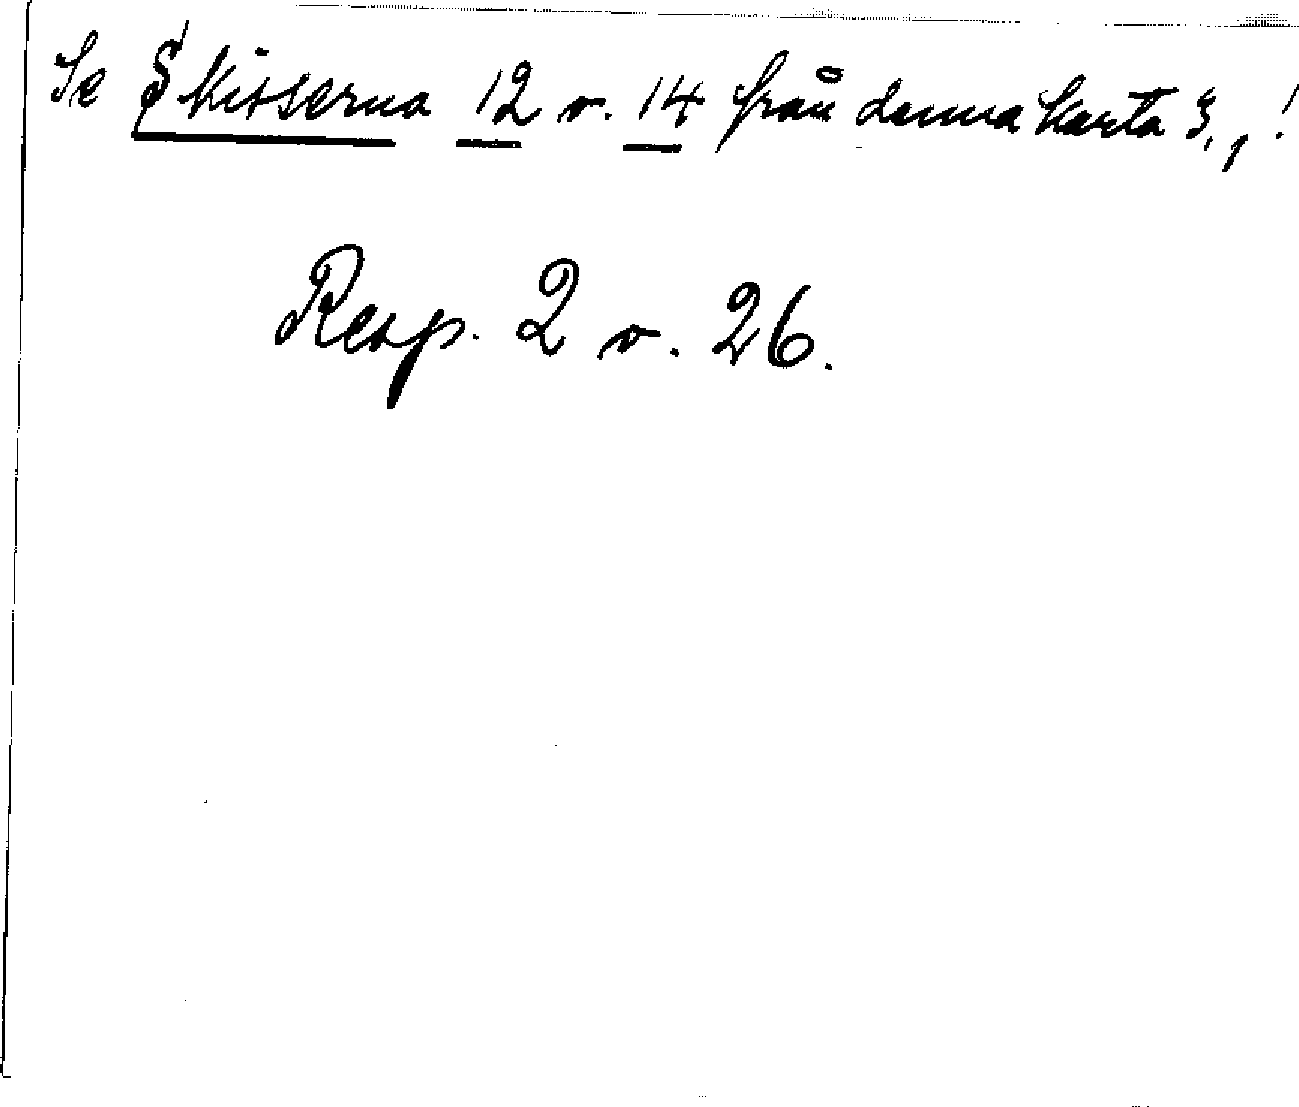 Se Skisserna 12 o. 14 från denna karta 3,, !
Resp. 2 o. 26.